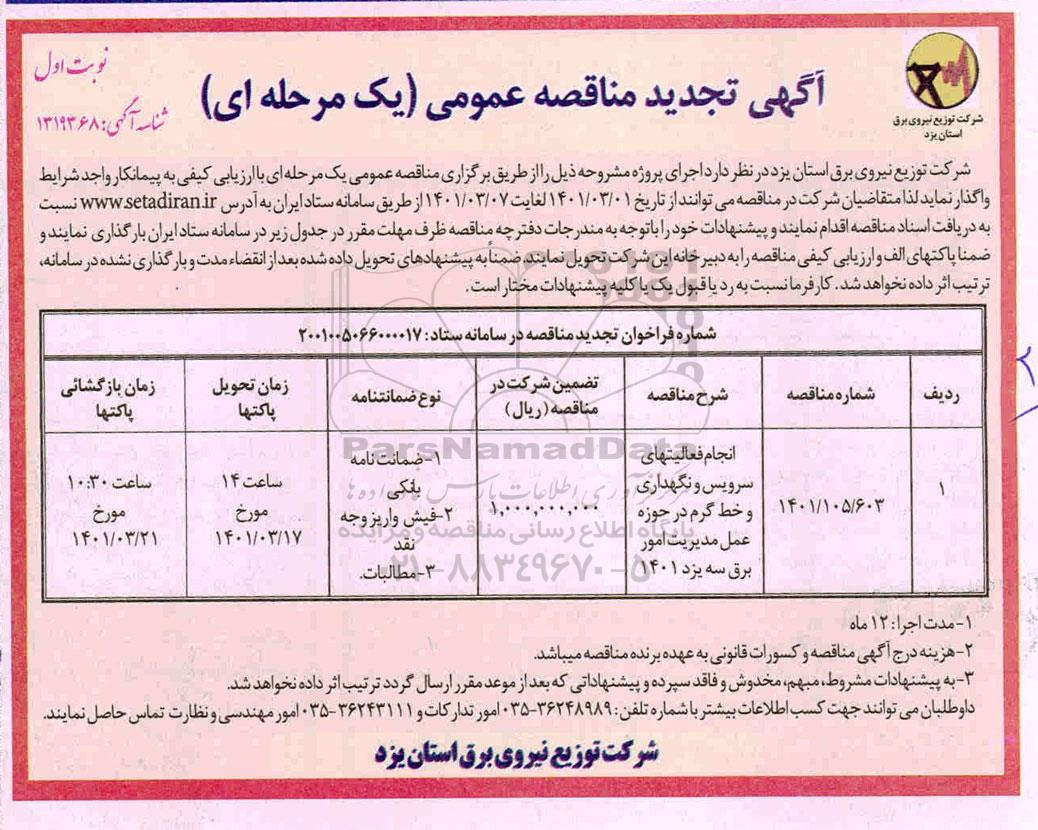 نوبت اول
شناسه آگهی: ۱۳۱۹۳۶۸
آگهی تجدید مناقصه عمومی (یک مرحله ای)
شرکت توزیع نیروی برق
استان یزد
شرکت توزیع نیروی برق استان یزد در نظر دارد اجرای پروژه مشروحه ذیل را از طریق برگزاری مناقصه عمومی یک مرحله ای با ارزیابی کیفی به پیمانکار واجد شرایط
واگذار نماید لذا متقاضیان شرکت در مناقصه می توانند از تاریخ ۱۴۰۱/۰۳/۰۱ لغایت ۱۴۰۱/۰۳/۰۷ از طریق سامانه ستاد ایران به آدرس www.setadiran.ir نسبت
به دریافت اسناد مناقصه اقدام نمایند و پیشنهادات خود را باتوجه به مندرجات دفترچه مناقصه ظرف مهلت مقرر در جدول زیر در سامانه ستاد ایران بارگذاری نمایند و
ضمنا پاکتهای الف و ارزیابی کیفی مناقصه را به دبیرخانه این شرکت تحویل نمایند. ضمناً به پیشنهادهای تحویل داده شده بعد از انقضاء مدت و بارگذاری نشده در سامانه،
ترتیب اثر داده نخواهد شد. کارفرما نسبت به رد یا قبول یک یا کلیه پیشنهادات مختار است.
شماره فراخوان تجدید مناقصه در سامانه ستاد: ۲۰۰۱۰۰۵۰۶۶۰۰۰۰۱۷
ردیف
شماره مناقصه
شرح مناقصه
تضمین شرکت در
مناقصه (ریال)
نوع ضمانتنامه
زمان تحویل
پاکتها
زمان بازگشائی
پاکتها
۱
۱۴۰۱/۱۰۵/۶۰۳
انجام فعالیتهای
سرویس و نگهداری
و خط گرم در حوزه
عمل مدیریت امور
برق سه یزد ۱۴۰۱
۱,۰۰۰,۰۰۰,۰۰۰
۱-ضمانت نامه
بانکی
۲-فیش واریز وجه
نقد
۳-مطالبات.
ساعت ۱۴
مورخ
۱۴۰۱/۰۳/۱۷
ساعت ۱۰:۳۰
مورخ
۱۴۰۱/۰۳/۲۱
ParsNamadData
پایگاه اطلاع رسانی مناقصه و مزایده
۰۲۱-۸۸۳۴۹۶۷۰-۵
۱-مدت اجرا: ۱۲ ماه
۲-هزینه درج آگهی مناقصه و کسورات قانونی به عهده برنده مناقصه میباشد.
۳-به پیشنهادات مشروط، مبهم، مخدوش و فاقد سپرده و پیشنهاداتی که بعد از موعد مقرر ارسال گردد ترتیب اثر داده نخواهد شد.
داوطلبان می توانند جهت کسب اطلاعات بیشتر با شماره تلفن: ۳۶۲۴۸۹۸۹-۰۳۵ امور تدارکات و ۳۶۲۴۳۱۱۱-۰۳۵ امور مهندسی و نظارت تماس حاصل نمایند.
شرکت توزیع نیروی برق استان یزد